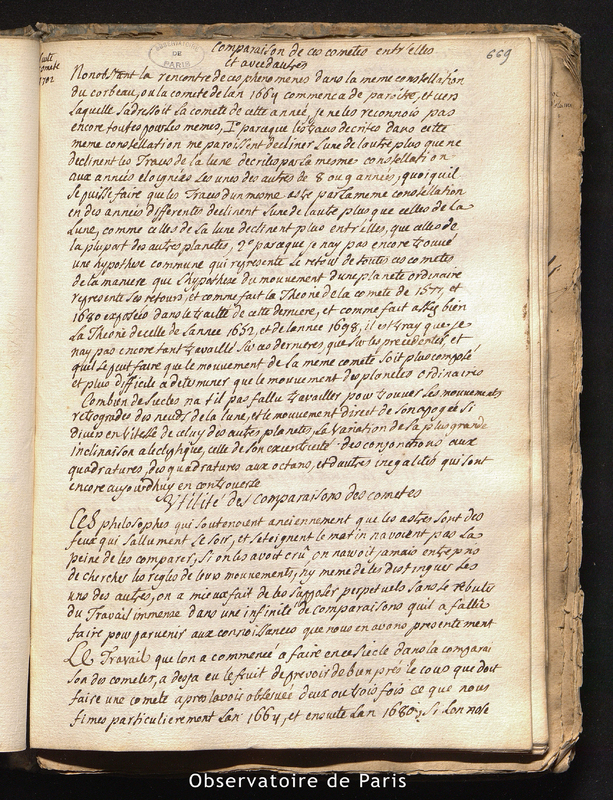 Comparaison de ces cometes entr'elles
et avec d'autres
669
suite
comete
1702
OBSERVATOIRE
DE
PARIS
Nonobstant la rencontre de ces phenomenes dans la meme constellation
du corbeau, ou la comete de lan 1664 commenca de paroitre, et vers
laquelle s'adressoit la comete de cette année, je ne les reconnois pas
encore toutes pour les memes, 1º parceque les traces decrites dans cette
meme constellation me paroissent decliner l'une de l'autre plus que ne
declinent les traces de la lune decrites par la mesme constellation
aux années eloignées les unes des autres de 8 ou 9 années, quoiqu'il
se puisse faire que les traces d'un mesme astre par la meme constellation
en des années differentes declinent l'une de l'autre plus que celles de la
Lune, comme celles de la lune declinent plus entr'elles, que celles de
la plupart des autres planetes, 2º parceque je n'ay pas encore trouvé
une hypothese commune qui represente le retour de toutes ces cometes
de la maniere que l'hypothese du mouvement d'une planete ordinaire
represente ses retours, et comme fait la Theorie de la comete de 1577, et
1680 exposée dans le traitté de cette derniere, et comme fait assez bien
la Theorie de celle de l'année 1652, et de l'année 1698, il est vray que je
n'ay pas encore tant travaillé sur ces dernieres que sur les precedentes, et
qu'il se peut faire que le mouvement de la meme comete soit plus composé
et plus difficile a determiner que le mouvement des planetes ordinaires
Combien de siecles n'a t'il pas fallu travailler pour trouver les mouvements
retrogrades des neuds de la lune, et le mouvement direct de son apogée si
divers en vitesse de celuy des autres planetes, la variation de sa plus grande
inclinaison a l'ecliptique, celle de son excentricité des conjonctions aux
quadratures, des quadratures aux octans, et d'autres inegalités qui sont
encore aujourdhuy en controverse
Utilité des comparaisons des cometes
Les philosophes qui soutenoient anciennement que les astres sont des
feux qui s'allument le soir, et s'eteignent le matin n'avoient pas la
peine de les comparer, si on les avoit crû on n'auroit jamais entrepris
de chercher les regles de leurs mouvements, ny meme de les distinguer les
uns des autres, on a mieux fait de les supposer perpetuels sans se rebuter
du Travail immense dans une infinité de comparaisons qu'il a fallu
faire pour parvenir aux connoissances que nous en avons presentement
Le Travail que lon a commencé a faire en ce siecle dans la comparai
son des cometes, a desja eu le fruit de prevoir de bien prés le cours que doit
faire une comete apres l'avois observée deux ou trois fois ce que nous
fimes particulierement lan 1664, et ensuite lan 1680, si lon n'ose
Observatoire de Paris